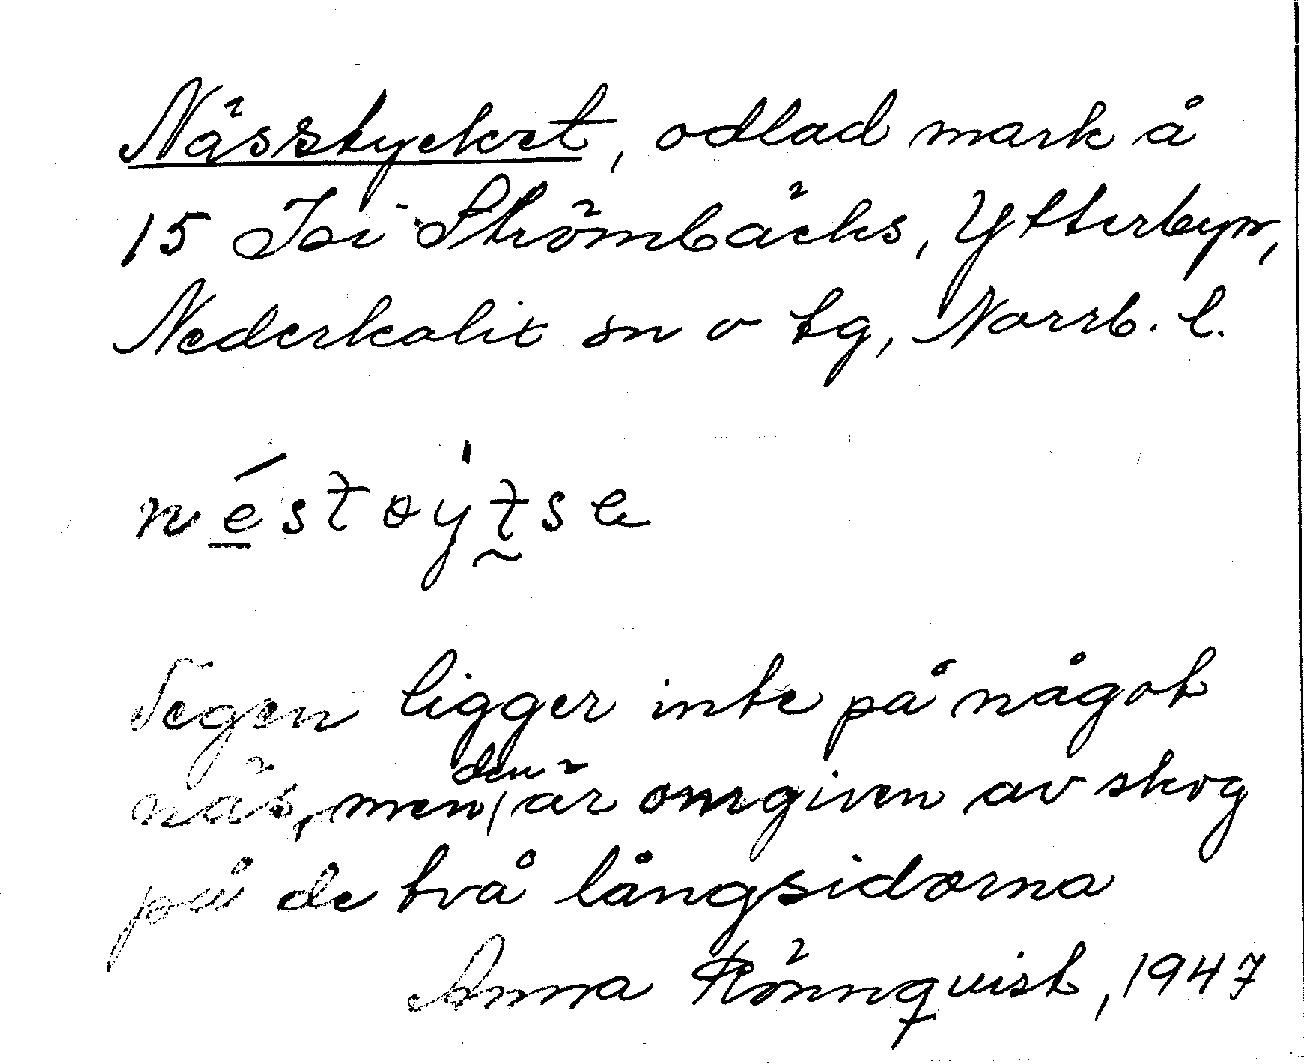 Nässtycket, odlad mark å
15 Isi Strömbäcks, Ytterbyn,
Nederkalix sn o tg, Norrb. l.
néstøýtse
Tegen ligger inte på något
näs, men den är omgiven av skog
på de två långsidorna
Anna Rönnquist, 1947